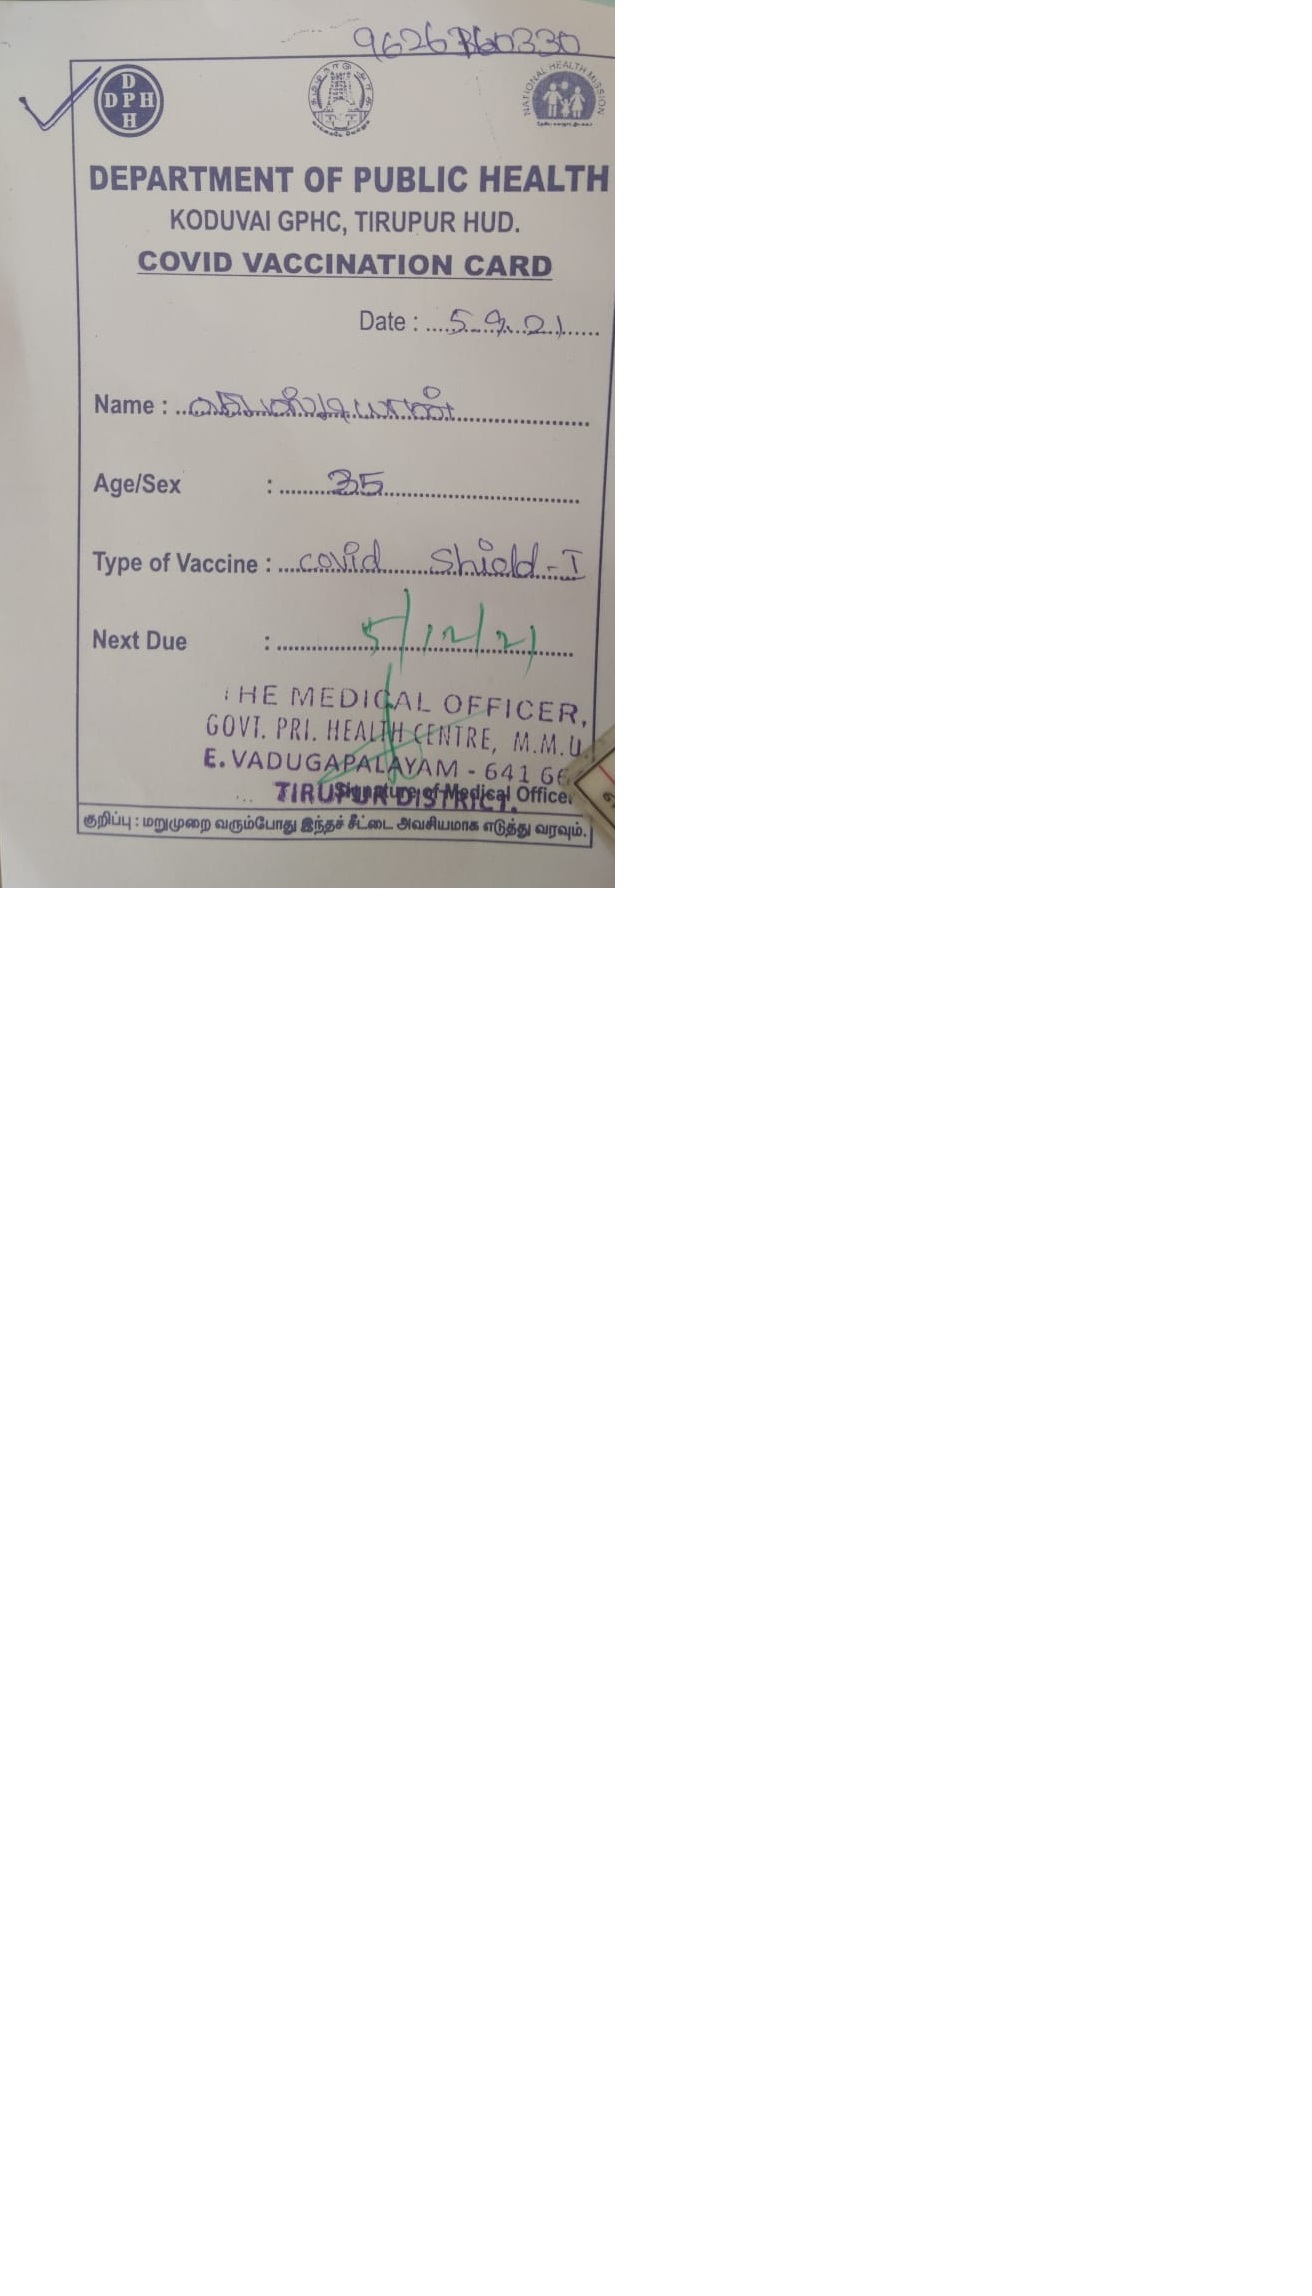 D
DPH
H
NATIONAL HEALTH MISSION
DEPARTMENT OF PUBLIC HEALTH
KODUVAI GPHC, TIRUPUR HUD.
COVID VACCINATION CARD
Date : 5.9.21
Name :
Age/Sex : 35
Type of Vaccine : covid Shield-I
Next Due : 5/12/21
HE MEDICAL OFFICER,
GOVT. PRI. HEALTH CENTRE, M.M.U
E. VADUGAPALAYAM - 641 66
TIRUPUR DISTRICT.
Signature of Medical Officer
குறிப்பு : மறுமுறை வரும்போது இந்தச் சீட்டை அவசியமாக எடுத்து வரவும்.